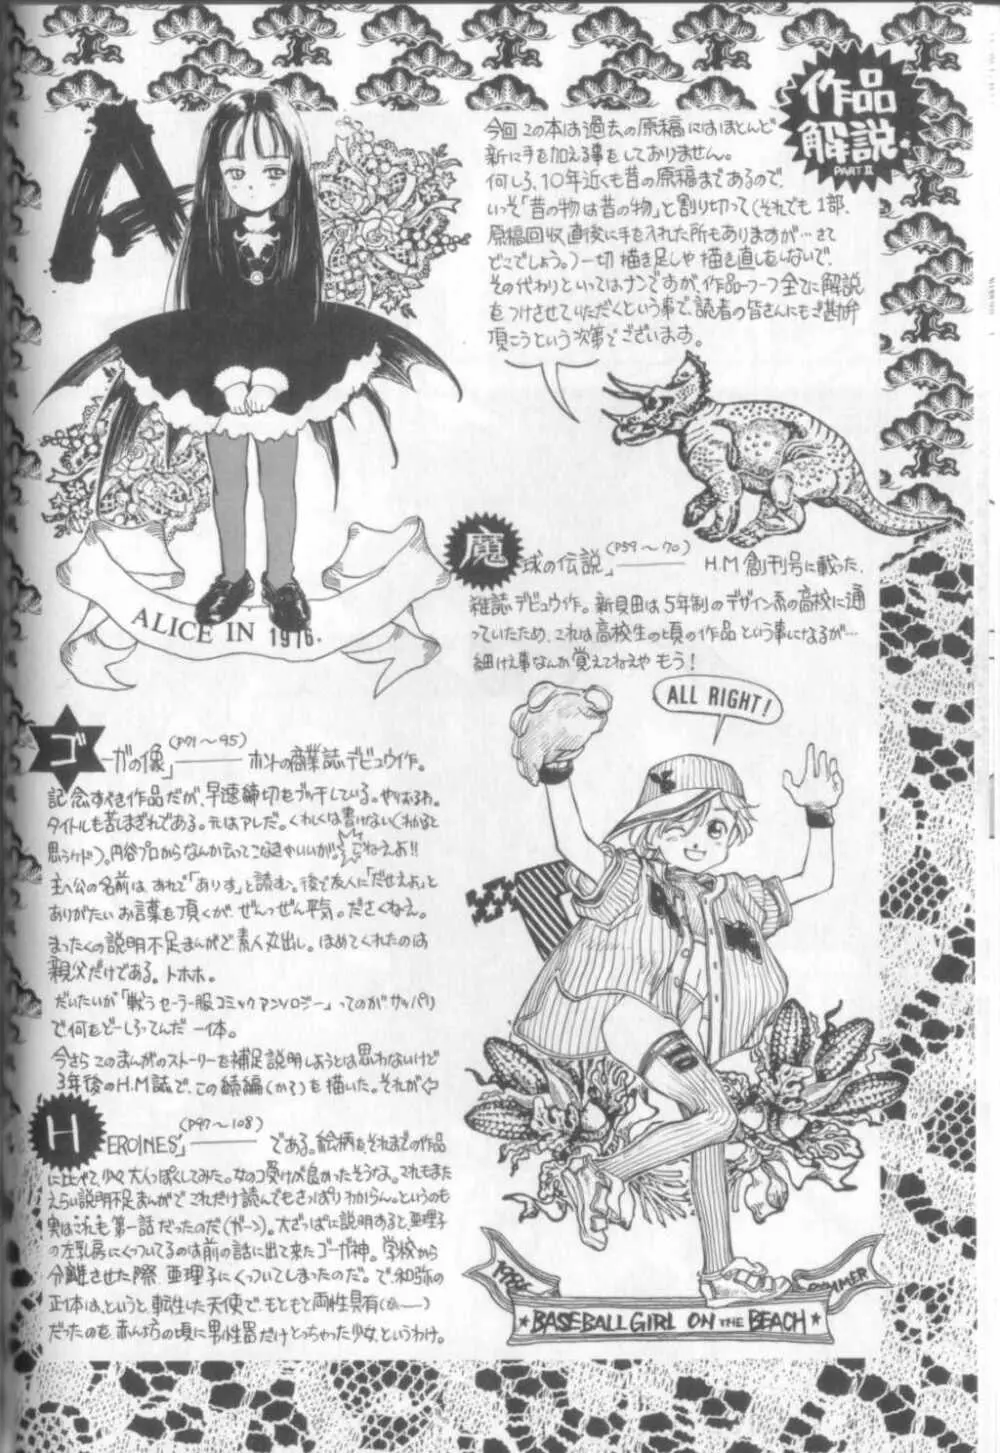 作品
解説
PART II
今回この本は過去の原稿にはほとんど
新に手を加える事をしておりません。
何しろ、10年近くも昔の原稿まであるので、
いっそ「昔の物は昔の物」と割り切って(それでも1部、
原稿回収直後に手を入れた所もありますが…さて
どこでしょう。)一切描き足しや描き直しをしないで、
その代わりといってはナンですが、作品一つ一つ全てに解説
をつけさせていただくという事で、読者の皆さんにもご勘弁
頂こうという次第でございます。
A
ALICE IN 1976.
魔球の伝説」(P59〜70) H.M創刊号に載った、
雑誌デビュウ作。新貝田は5年制のデザイン系の高校に通
っていたため、これは高校生の頃の作品という事になるが…
細けえ事なんか覚えてねえや もう!
ALL RIGHT!
ゴーガの像」(P71〜95) ホントの商業誌デビュウ作。
記念すべき作品だが、早速締切をブッ千している。やりおるわ。
タイトルも苦しまぎれである。元はアレだ。くわしくは書けない(わかると
思うケド)。円谷プロからなんか云ってこなきゃいいが。こねえよ!!
主人公の名前は、あれで「ありす」と読む。後で友人に「だせえよ」と
ありがたいお言葉を頂くが、ぜんっぜん平気。ださくねえ。
まったくの説明不足まんがで素人丸出し。ほめてくれたのは
親父だけである。トホホ。
だいたいが「戦うセーラー服コミックアンソロジー」ってのがサッパリ
で何をどーしろってんだ 一体。
今さらこのまんがのストーリーを補足説明しようとは思わないけど
3年後のH.M誌で、この続編(か?)を描いた。それが
HEROINES」(P97〜108) である。絵柄もそれまでの作品
に比べて、少々大人っぽくしてみた。女のコ受けが良かったそうな。これもまた
えらい説明不足まんがで これだけ読んでもさっぱりわからん。というのも
実はこれも第一話だったのだ(ガーン)。大ざっぱに説明すると、亜理子
の左乳房にくっついてるのは前の話に出て来たゴーガ神。学校から
分離させた際、亜理子にくっついてしまったのだ。で和弥の
正体は、というと、転生した天使で、もともと両性具有
だったのを、赤ん坊の頃に男性器だけとっちゃった少女、というわけ。
SUMMER
★BASEBALL GIRL ON THE BEACH★